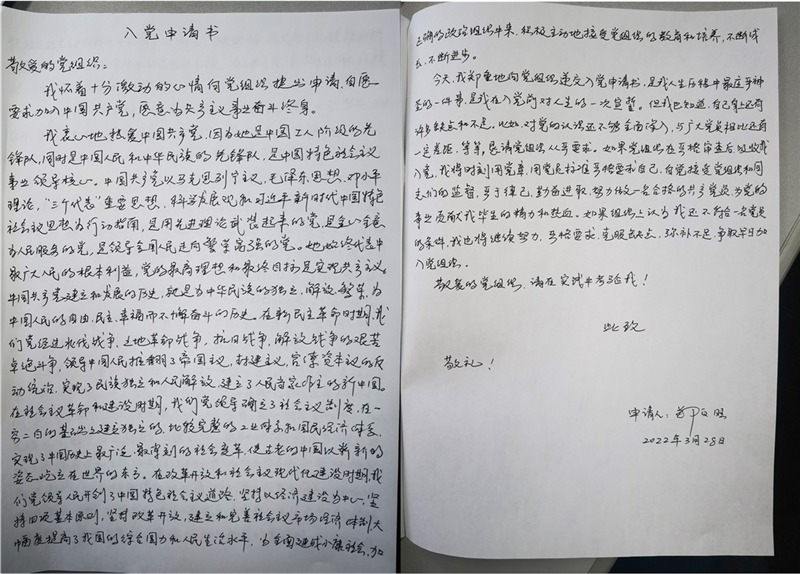 入党申请书
敬爱的党组织：
我怀着十分激动的心情向党组织提出申请，自愿
要求加入中国共产党，愿意为共产主义事业奋斗终身。
我衷心地热爱中国共产党，因为她是中国工人阶级的先
锋队，同时是中国人民和中华民族的先锋队，是中国特色社会主义
事业领导核心。中国共产党以马克思列宁主义，毛泽东思想，邓小平
理论，“三个代表”重要思想，科学发展观和习近平新时代中国特色
社会主义思想为行动指南，是用先进理论武装起来的党，是全心全意
为人民服务的党，是领导全国人民走向繁荣富强的党。她始终代表中
最广大人民的根本利益，党的最高理想和最终目标是实现共产主义。
中国共产党建立和发展的历史，就是为中华民族的独立、解放、繁荣，为
中国人民的自由、民主、幸福而不懈奋斗的历史。在新民主革命时期，我
们党经过北伐战争，土地革命战争，抗日战争，解放战争的艰苦
卓绝斗争，领导中国人民推翻了帝国主义，封建主义，官僚资本主义的反
动统治，实现了民族独立和人民解放，建立了人民当家作主的新中国。
在社会主义革命和建设时期，我们党领导确立了社会主义制度，在一
穷二白的基础上建立独立的，比较完整的工业体系和国民经济体系，
实现了中国历史上最广泛，最深刻的社会变革，使古老的中国以崭新的
姿态屹立在世界的东方。在改革开放和社会主义现代化建设时期，我
们党领导人民开创了中国特色社会主义道路，坚持以经济建设为中心，坚
持四项基本原则，坚持改革开放，建立和完善社会主义市场经济体制，大
幅度提高了我国的综合国力和人民生活水平，为全面建成小康社会，加
正确的政治组织中来，积极主动地接受党组织的教育和培养，不断成
长，不断进步。
今天，我郑重地向党组织递交入党申请书，是我人生历程中最庄严神
圣的一件事，是我在入党前对人生的一次宣誓。但我也知道，自己身上还有
许多缺点和不足。比如，对党的认识还不够全面深入，与广大党员相比还有
一定差距，等等，恳请党组织从严要求。如果党组织在严格审查后批准我
入党，我将时刻用党章，用党员标准严格要求自己，自觉接受党组织和同
志们的监督，严于律己，勤奋进取，努力做一名合格的共产党员，为党的
事业贡献我毕生的精力和热血。如果组织上认为我还不符合一名党员
的条件，我也将继续努力，严格要求，克服缺点，弥补不足，争取早日加
入党组织。
敬爱的党组织，请在实践中考验我！
此致
敬礼！
申请人：
2022年3月28日